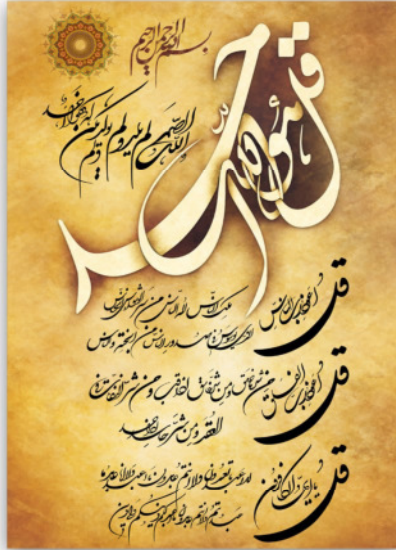 بسم الله الرحمن الرحيم
قل هو الله احد
الله الصمد لم يلد ولم يولد ولم يكن له كفوا احد
قل اعوذ برب الناس
ملك الناس اله الناس من شر الوسواس الخناس
الذي يوسوس في صدور الناس من الجنة والناس
قل اعوذ برب الفلق
من شر ما خلق ومن شر غاسق اذا وقب ومن شر النفاثات في
العقد ومن شر حاسد اذا حسد
قل يا ايها الكافرون
لا اعبد ما تعبدون ولا انتم عابدون ما اعبد ولا انا عابد ما
عبدتم ولا انتم عابدون ما اعبد لكم دينكم ولي دين